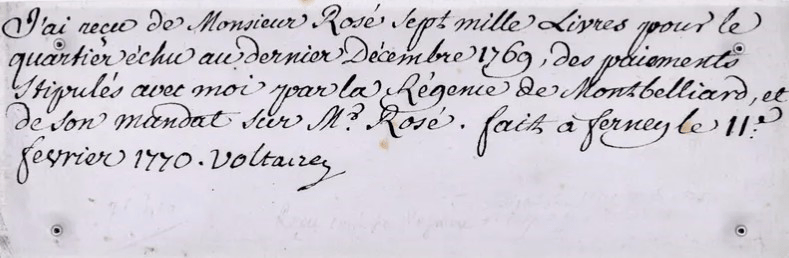 J'ai reçu de Monsieur Rosé sept mille Livres pour le
quartier échu au dernier Décembre 1769, des paiements
Stipulés avec moi par la Régence de Montbelliard, et
de son mandat sur Mr. Rosé. fait à ferney le 11e.
fevrier 1770. Voltaire